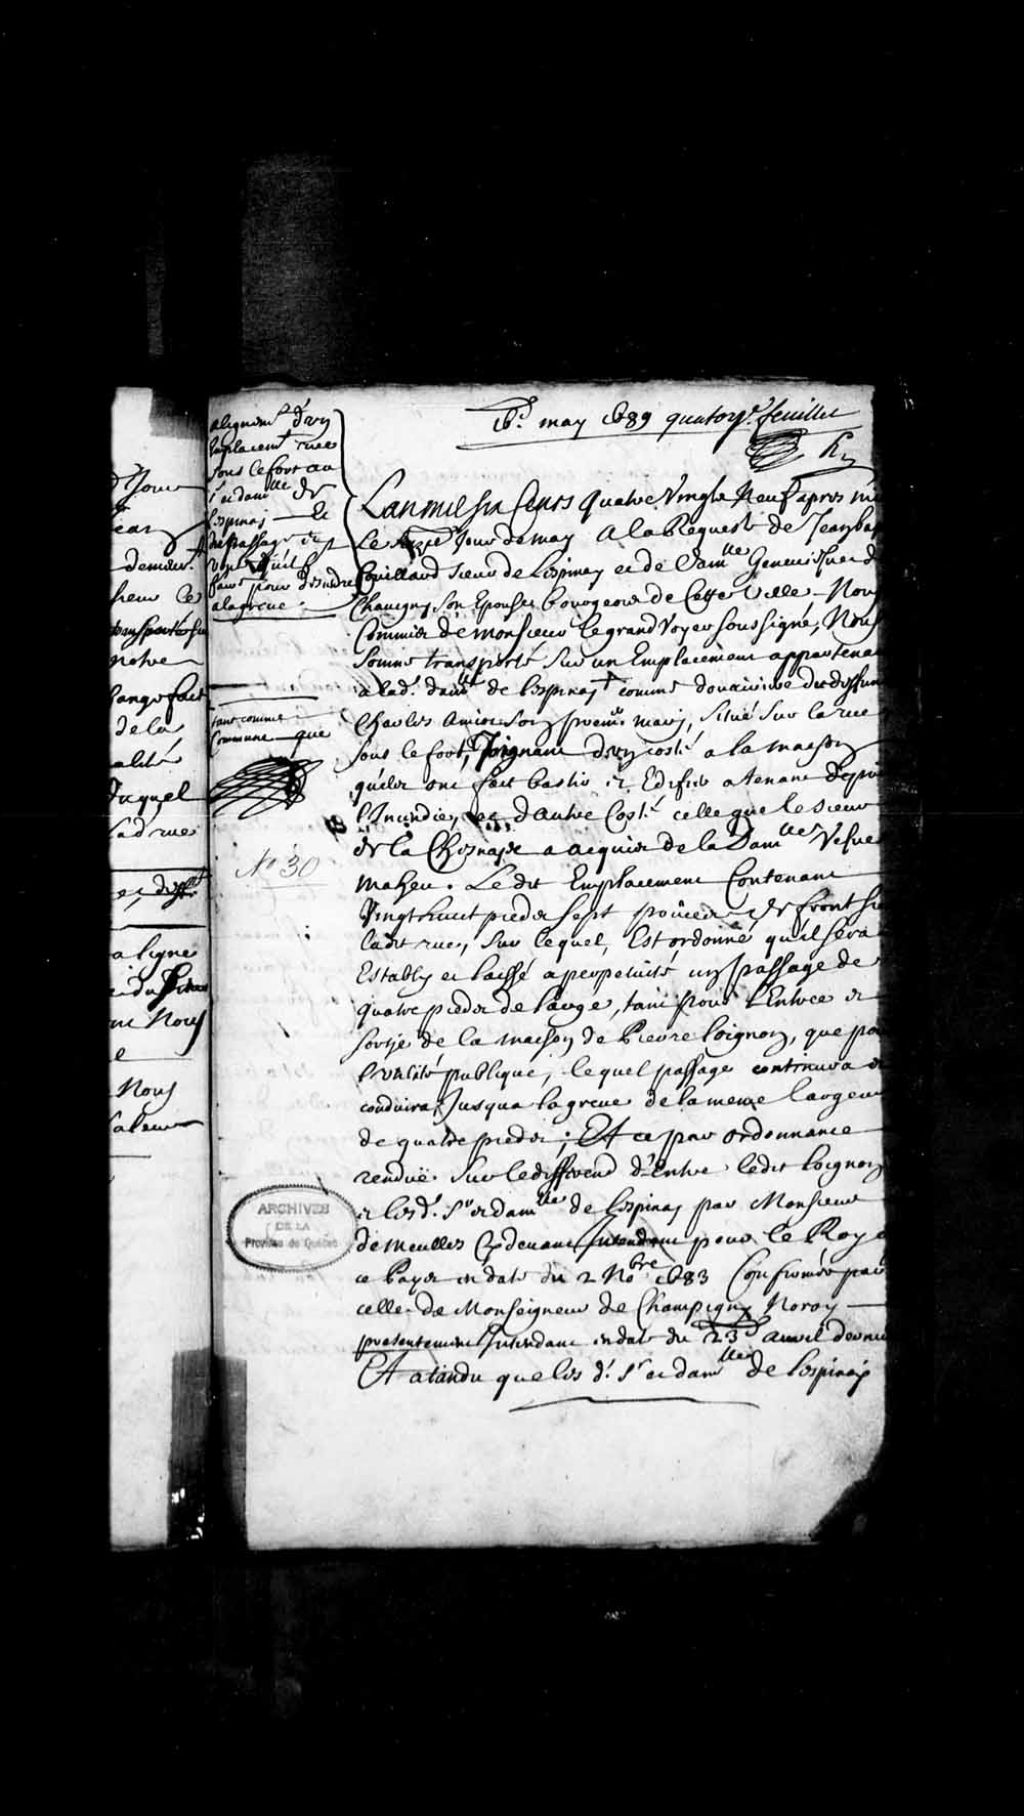 16e. may 1689 quatorze. feuillet
alignemt. d'un
Emplacemt rue
sous le fort au
Sr et damlle de
lespinay — Et
du passage
qu'il
faut pour desendre
a la greue.
L'an mil six Cens Quatre Vingt Neuf apres mi
Le jour de may A la Requeste de Jean bap
Couillard sieur de Lespinay et de damlle Geneviefue d
Chauigny son Epouse, bourgeois de Cette Ville. Nous
Commis de monsieur le grand Voyer soussigné, Nous
somme transporté sur un Emplacement appartena
a lad. damlle de lespinay + comme douairiere du deffun
tant comme
Commune que
Charles Amiot son premier mary, situé sur la rue
sous le fort, Joignant d'un costé a la maison
qu'ils ont fait bastir et Edifier atenant depuis
l'Incendie, et d'autre Costé celle que le sieur
de la Chesnaye a acquis de la Damlle Vefue
Maheu. Ledit Emplacement Contenant
Vingt huit pieds sept poûces de front sur
ladit rue, sur lequel, Est ordonné qu'il sera
Estably et laissé a perpetuité un passage de
quatre pieds de large, tant pour l'Entrée et
sortje de la maison de Pierre loignon, que pou
l'vtilité publique, lequel passage continura et
conduira Jusqua la greue de la meme largeur
de quatre pieds; Et ce par ordonnance
rendüe sur le differend d'Entre ledit loignon
et lesd. Sr et damlle de lespinay par Monsieur
de Meulles Cy deuant Intendant pour le Roy e
ce Pays en date du 2 Nobre 1683 Confirmée par
celle de Monseigneur de Champigny Noroy —
presentement Intendant en date du 23e auril dernier
Et atandu que les d. Sr et damlle de lespinay
No 30
ARCHIVES
DE LA
Province de Québec
demeur.
transporté su
notre
large fait
de la
alité
duquel
lad rue
a ligne
Nous
e
Nous